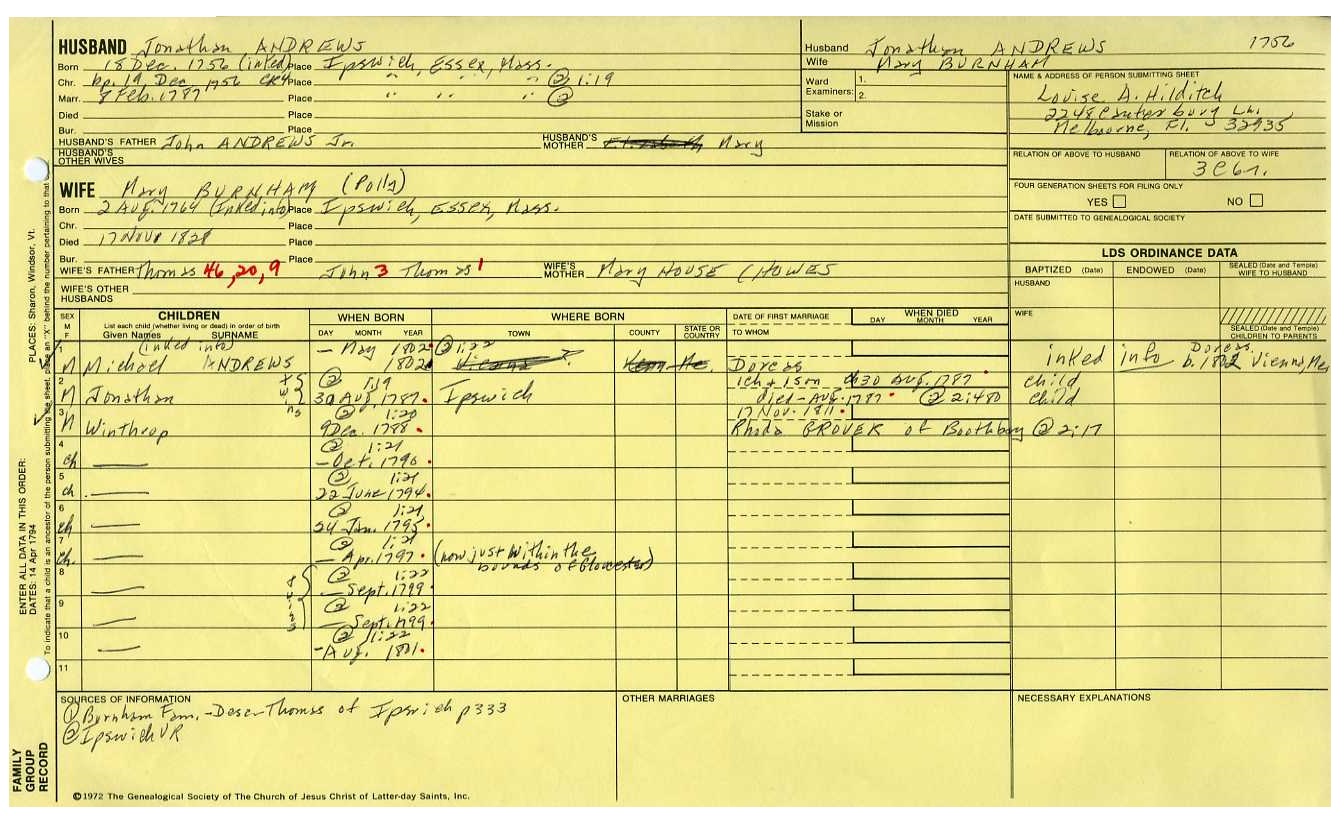 HUSBAND Jonathan ANDREWS
Born 18 Dec. 1756 (inked) Place Ipswich, Essex, Mass.
Chr. bp. 19 Dec 1756 CR4 Place " " " @ 1:19
Marr. 8 Feb. 1787 Place " " " @
Died Place
Bur. Place
HUSBAND'S FATHER John ANDREWS Jr. HUSBAND'S MOTHER Mary
HUSBAND'S OTHER WIVES
Husband Jonathan ANDREWS 1756
Wife Mary BURNHAM
Ward Examiners: 1. 2.
Stake or Mission
NAME & ADDRESS OF PERSON SUBMITTING SHEET
Louise A. Hilditch
2248 Canterbury Ln.
Melbourne, Fl. 32935
RELATION OF ABOVE TO HUSBAND RELATION OF ABOVE TO WIFE
3C6r.
FOUR GENERATION SHEETS FOR FILING ONLY
YES NO
DATE SUBMITTED TO GENEALOGICAL SOCIETY
WIFE Mary BURNHAM (Polly)
Born 2 Aug. 1764 (Inked info) Place Ipswich, Essex, Mass.
Chr. Place
Died 17 Nov 1828 Place
Bur. Place
WIFE'S FATHER Thomas 46, 20, 9 John 3 Thomas 1 WIFE'S MOTHER Mary HOUSE (HOWES
WIFE'S OTHER HUSBANDS
LDS ORDINANCE DATA
BAPTIZED (Date) ENDOWED (Date) SEALED (Date and Temple) WIFE TO HUSBAND
HUSBAND
WIFE
SEALED (Date and Temple) CHILDREN TO PARENTS
SEX M F
CHILDREN
List each child (whether living or dead) in order of birth
Given Names SURNAME
WHEN BORN
DAY MONTH YEAR
WHERE BORN
TOWN COUNTY STATE OR COUNTRY
DATE OF FIRST MARRIAGE
TO WHOM
WHEN DIED
DAY MONTH YEAR
1 (inked info) - May 1802 @ 1:22
M Michael ANDREWS 1802 Vienna Kenn Me. Dorcas inked info Dorcas b. 1802 Vienna, Me
2 twins @ 1:19 1ch + 1son ch 30 Aug. 1787 child
M Jonathan 30 Aug. 1787 Ipswich died - Aug. 1787 @ 2:480 child
3 @ 1:20 17 Nov. 1811
M Winthrop 9 Dec. 1788 Rhoda GROVER of Boothbay @ 2:17
4 @ 1:21
ch — - Oct. 1790
5 @ 1:21
ch. — 22 June 1794
6 @ 1:21
ch — 24 Jan. 1795
7 @ 1:21
ch. — - Apr. 1797 (now just within the bounds of Gloucester)
8 @ 1:22
— - Sept. 1799
9 @ 1:22
— - Sept. 1799
10 @ 1:22
— - Aug. 1801
11
SOURCES OF INFORMATION
① Burnham Fam. - Desc - Thomas of Ipswich p 333
@ Ipswich VR
OTHER MARRIAGES
NECESSARY EXPLANATIONS
©1972 The Genealogical Society of The Church of Jesus Christ of Latter-day Saints, Inc.
FAMILY GROUP RECORD
ENTER ALL DATA IN THIS ORDER:
DATES: 14 Apr 1794
PLACES: Sharon, Windsor, Vt.
To indicate that a child is an ancestor of the person submitting the sheet, place an "X" behind the number pertaining to that